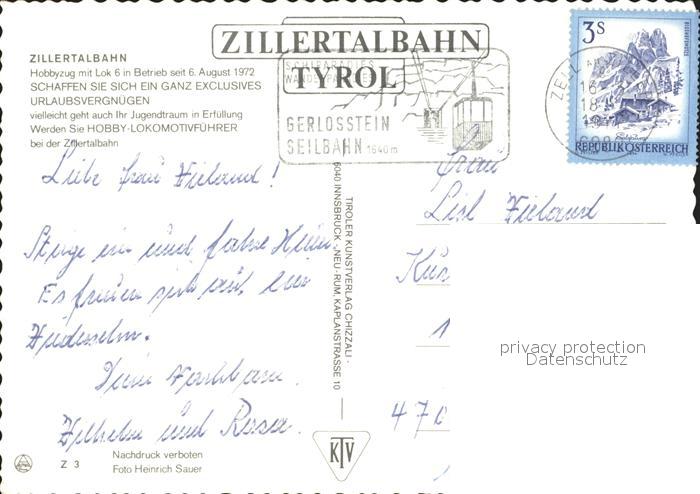 ZILLERTALBAHN
TYROL
ZILLERTALBAHN
Hobbyzug mit Lok 6 in Betrieb seit 6. August 1972
SCHAFFEN SIE SICH EIN GANZ EXCLUSIVES
URLAUBSVERGNÜGEN
vielleicht geht auch Ihr Jugendtraum in Erfüllung
Werden Sie HOBBY-LOKOMOTIVFÜHRER
bei der Zillertalbahn
SCHIPARADIES
GERLOSSTEIN
SEILBAHN 1640m
3S
REPUBLIK ÖSTERREICH
Liebe Frau Wieland!
Steige ein und fahre
Es freuen sich auf
Wiedersehn.
Wilhelm und Rosa.
TIROLER KUNSTVERLAG CHIZZALI ·
6040 INNSBRUCK-NEU-RUM, KAPLANSTRASSE 10
Frau
Lisl Wieland
1
KTV
Z 3
Nachdruck verboten
Foto Heinrich Sauer
privacy protection
Datenschutz